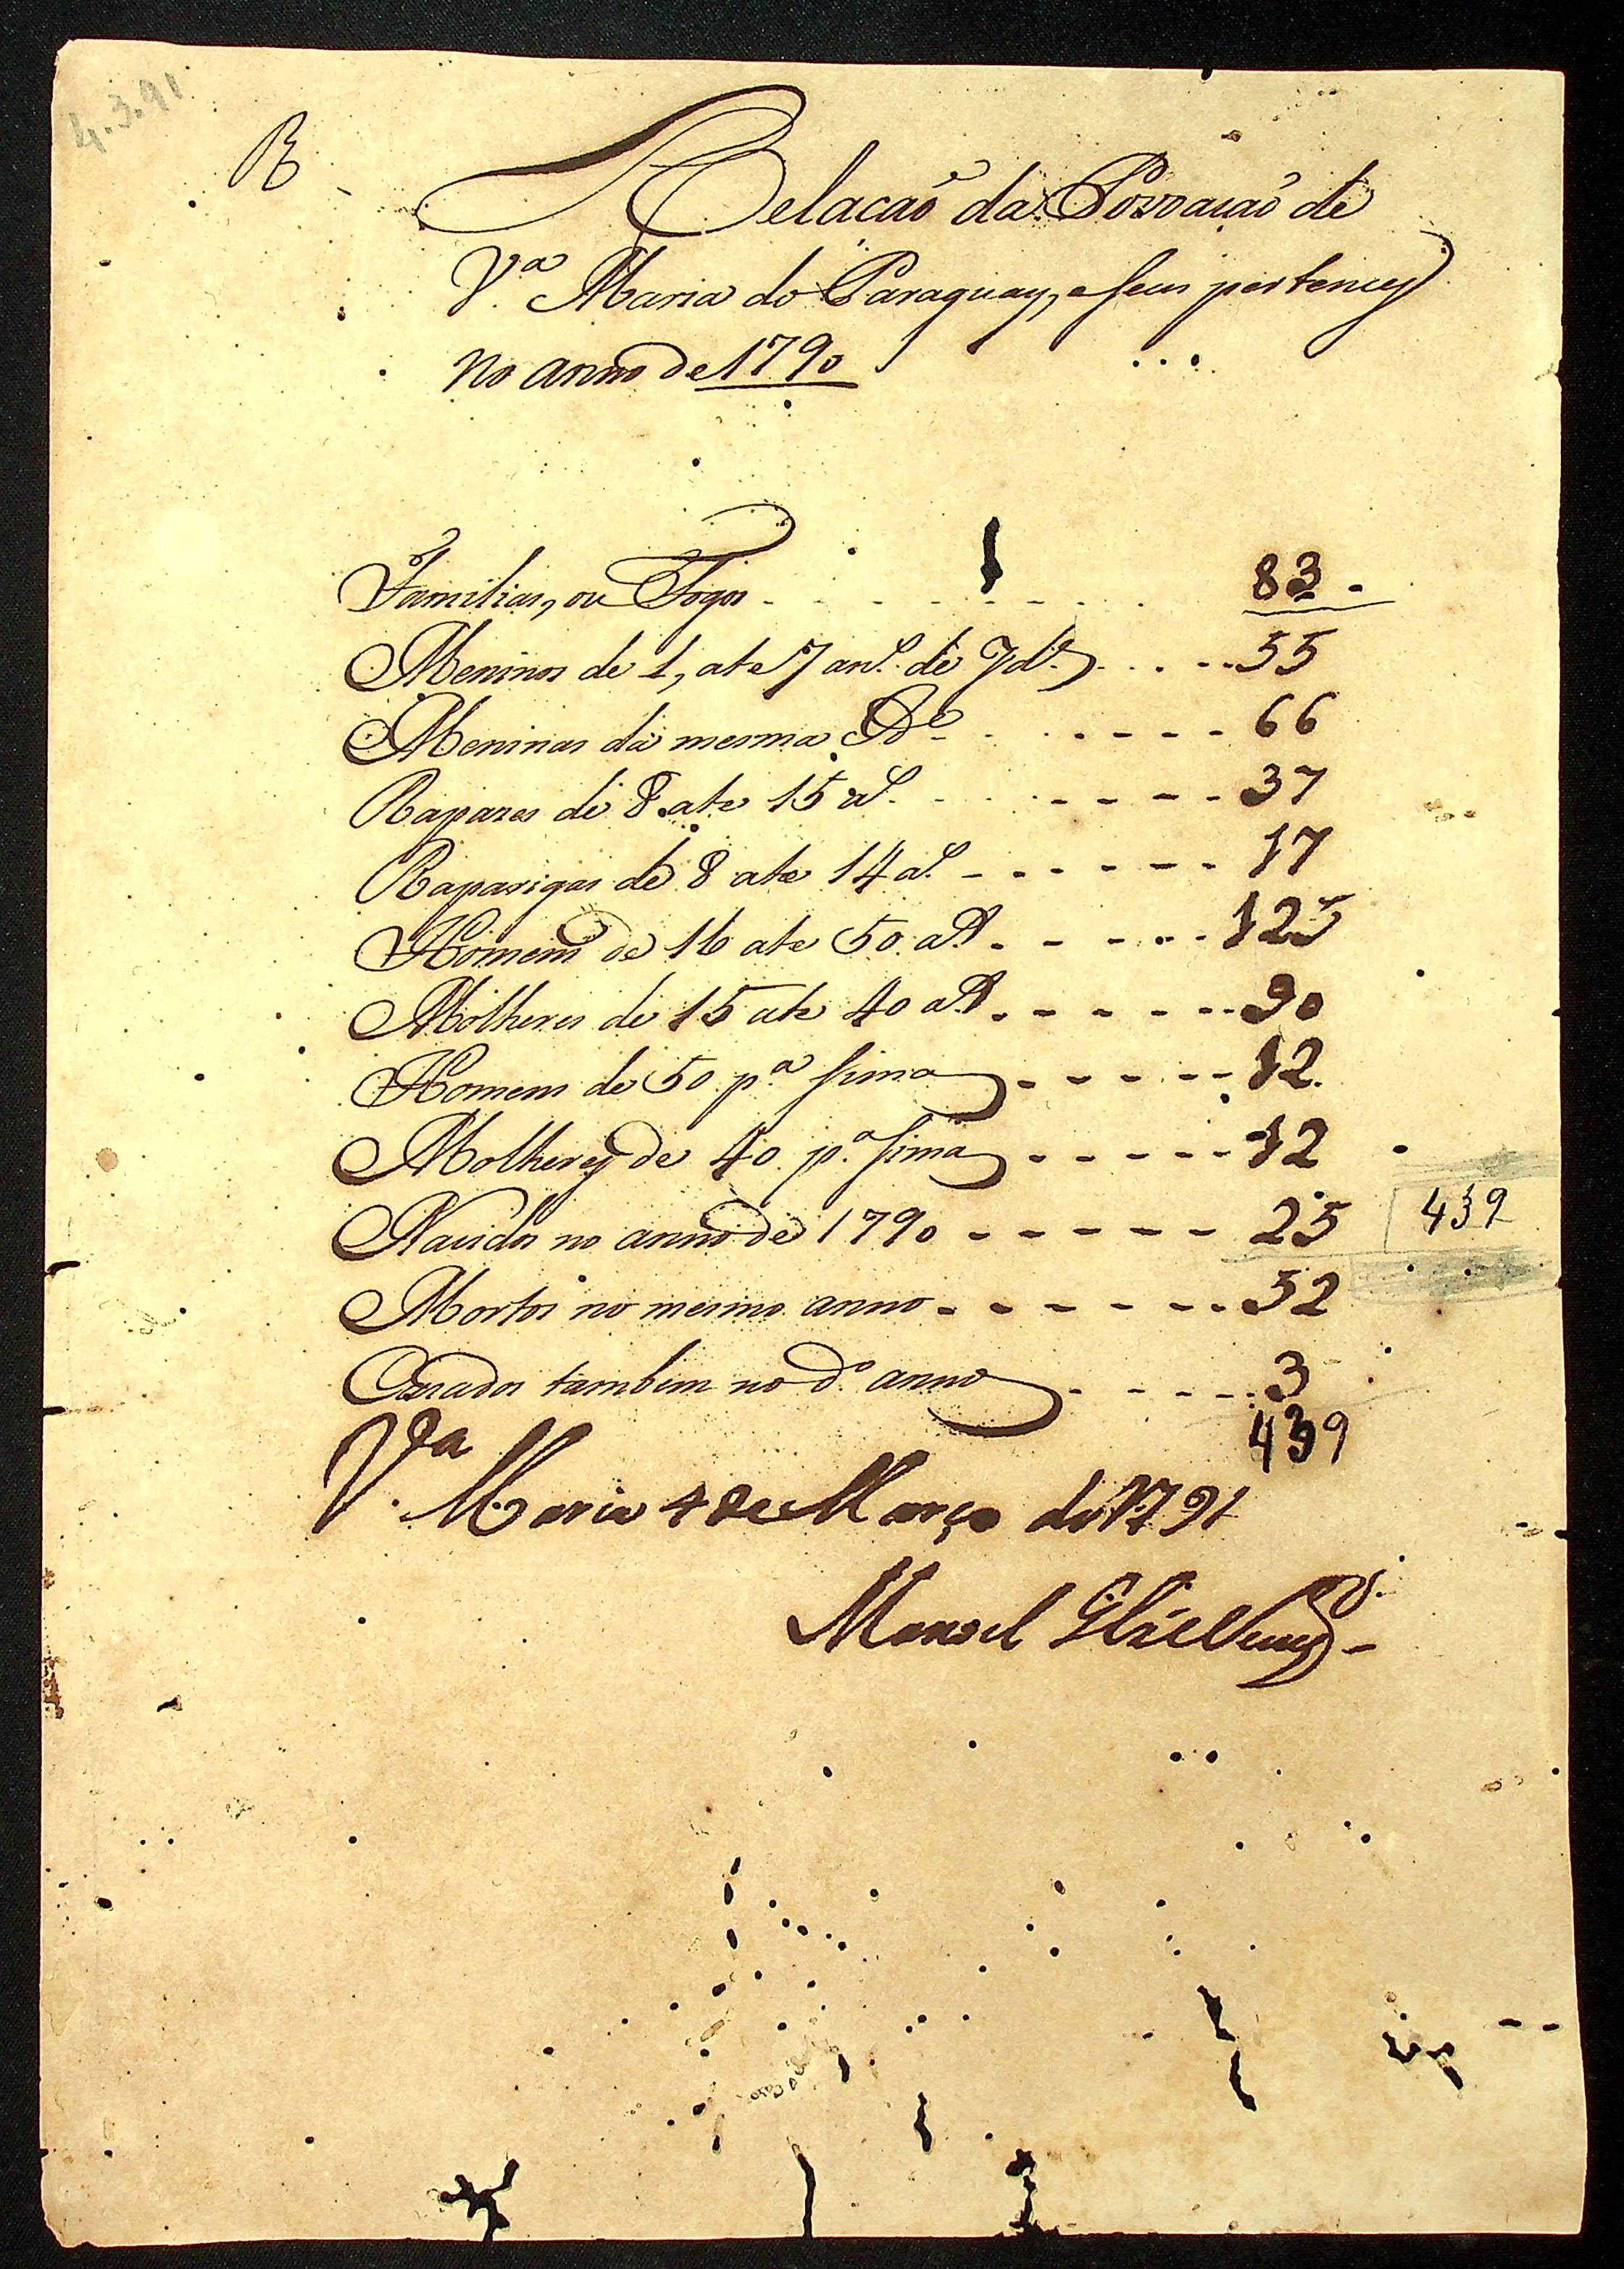 4.3.91
R
Relacaõ da Povoaçaõ de
V.ª Maria do Paraguay, e seus pertences
no anno de 1790
Familias, ou Fogos 83
Meninos de 1, ate 7 an.s de Id.e 55
Meninas da mesma Id.e 66
Rapazes de 8 ate 15 a.s 37
Raparigas de 8 ate 14 a.s 17
Homens de 16 ate 50 a.s 125
Molheres de 15 ate 40 a.s 90
Homens de 50 p.ª sima 12
Molheres de 40 p.ª sima 12
Nacidos no anno de 1790 25 439
Mortos no mesmo anno 52
Cazados tambem no d.º anno 3
439
V.ª Maria 4 de Março de 1791
Manoel